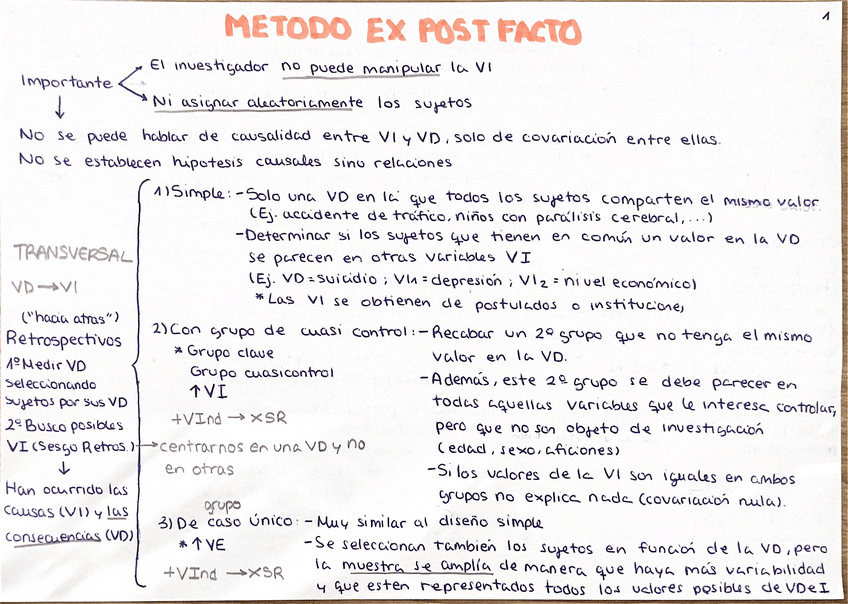 1
METODO EX POST FACTO
El investigador no puede manipular la VI
Importante
Ni asignar aleatoriamente los sujetos
No se puede hablar de causalidad entre VI y VD, solo de covariación entre ellas.
No se establecen hipotesis causales sino relaciones
TRANSVERSAL
VD → VI
("hacia atras")
Retrospectivos
1º Medir VD
seleccionando
sujetos por sus VD
2º Busco posibles
VI (Sesgo Retros.)
↓
Han ocurrido las
causas (VI) y las
consecuencias (VD)
1) Simple: - Solo una VD en la que todos los sujetos comparten el mismo valor
(Ej. accidente de tráfico, niños con parálisis cerebral, ...)
- Determinar si los sujetos que tienen en común un valor en la VD
se parecen en otras variables VI
(Ej. VD = suicidio ; VI1 = depresión ; VI2 = nivel económico)
* Las VI se obtienen de postulados o institucione,
2) Con grupo de cuasi control: - Recabar un 2º grupo que no tenga el mismo
valor en la VD.
* Grupo clave
Grupo cuasicontrol
↑ VI
+VInd → XSR
→ centrarnos en una VD y no
en otras
- Además, este 2º grupo se debe parecer en
todas aquellas variables que le interesa controlar,
pero que no son objeto de investigación
(edad, sexo, aficiones)
- Si los valores de la VI son iguales en ambos
grupos no explica nada (covariación nula).
grupo
3) De caso único: - Muy similar al diseño simple
* ↑ VE
+VInd → XSR
- Se seleccionan también los sujetos en función de la VD, pero
la muestra se amplía de manera que haya más variabilidad
y que esten representados todos los valores posibles de VD e I